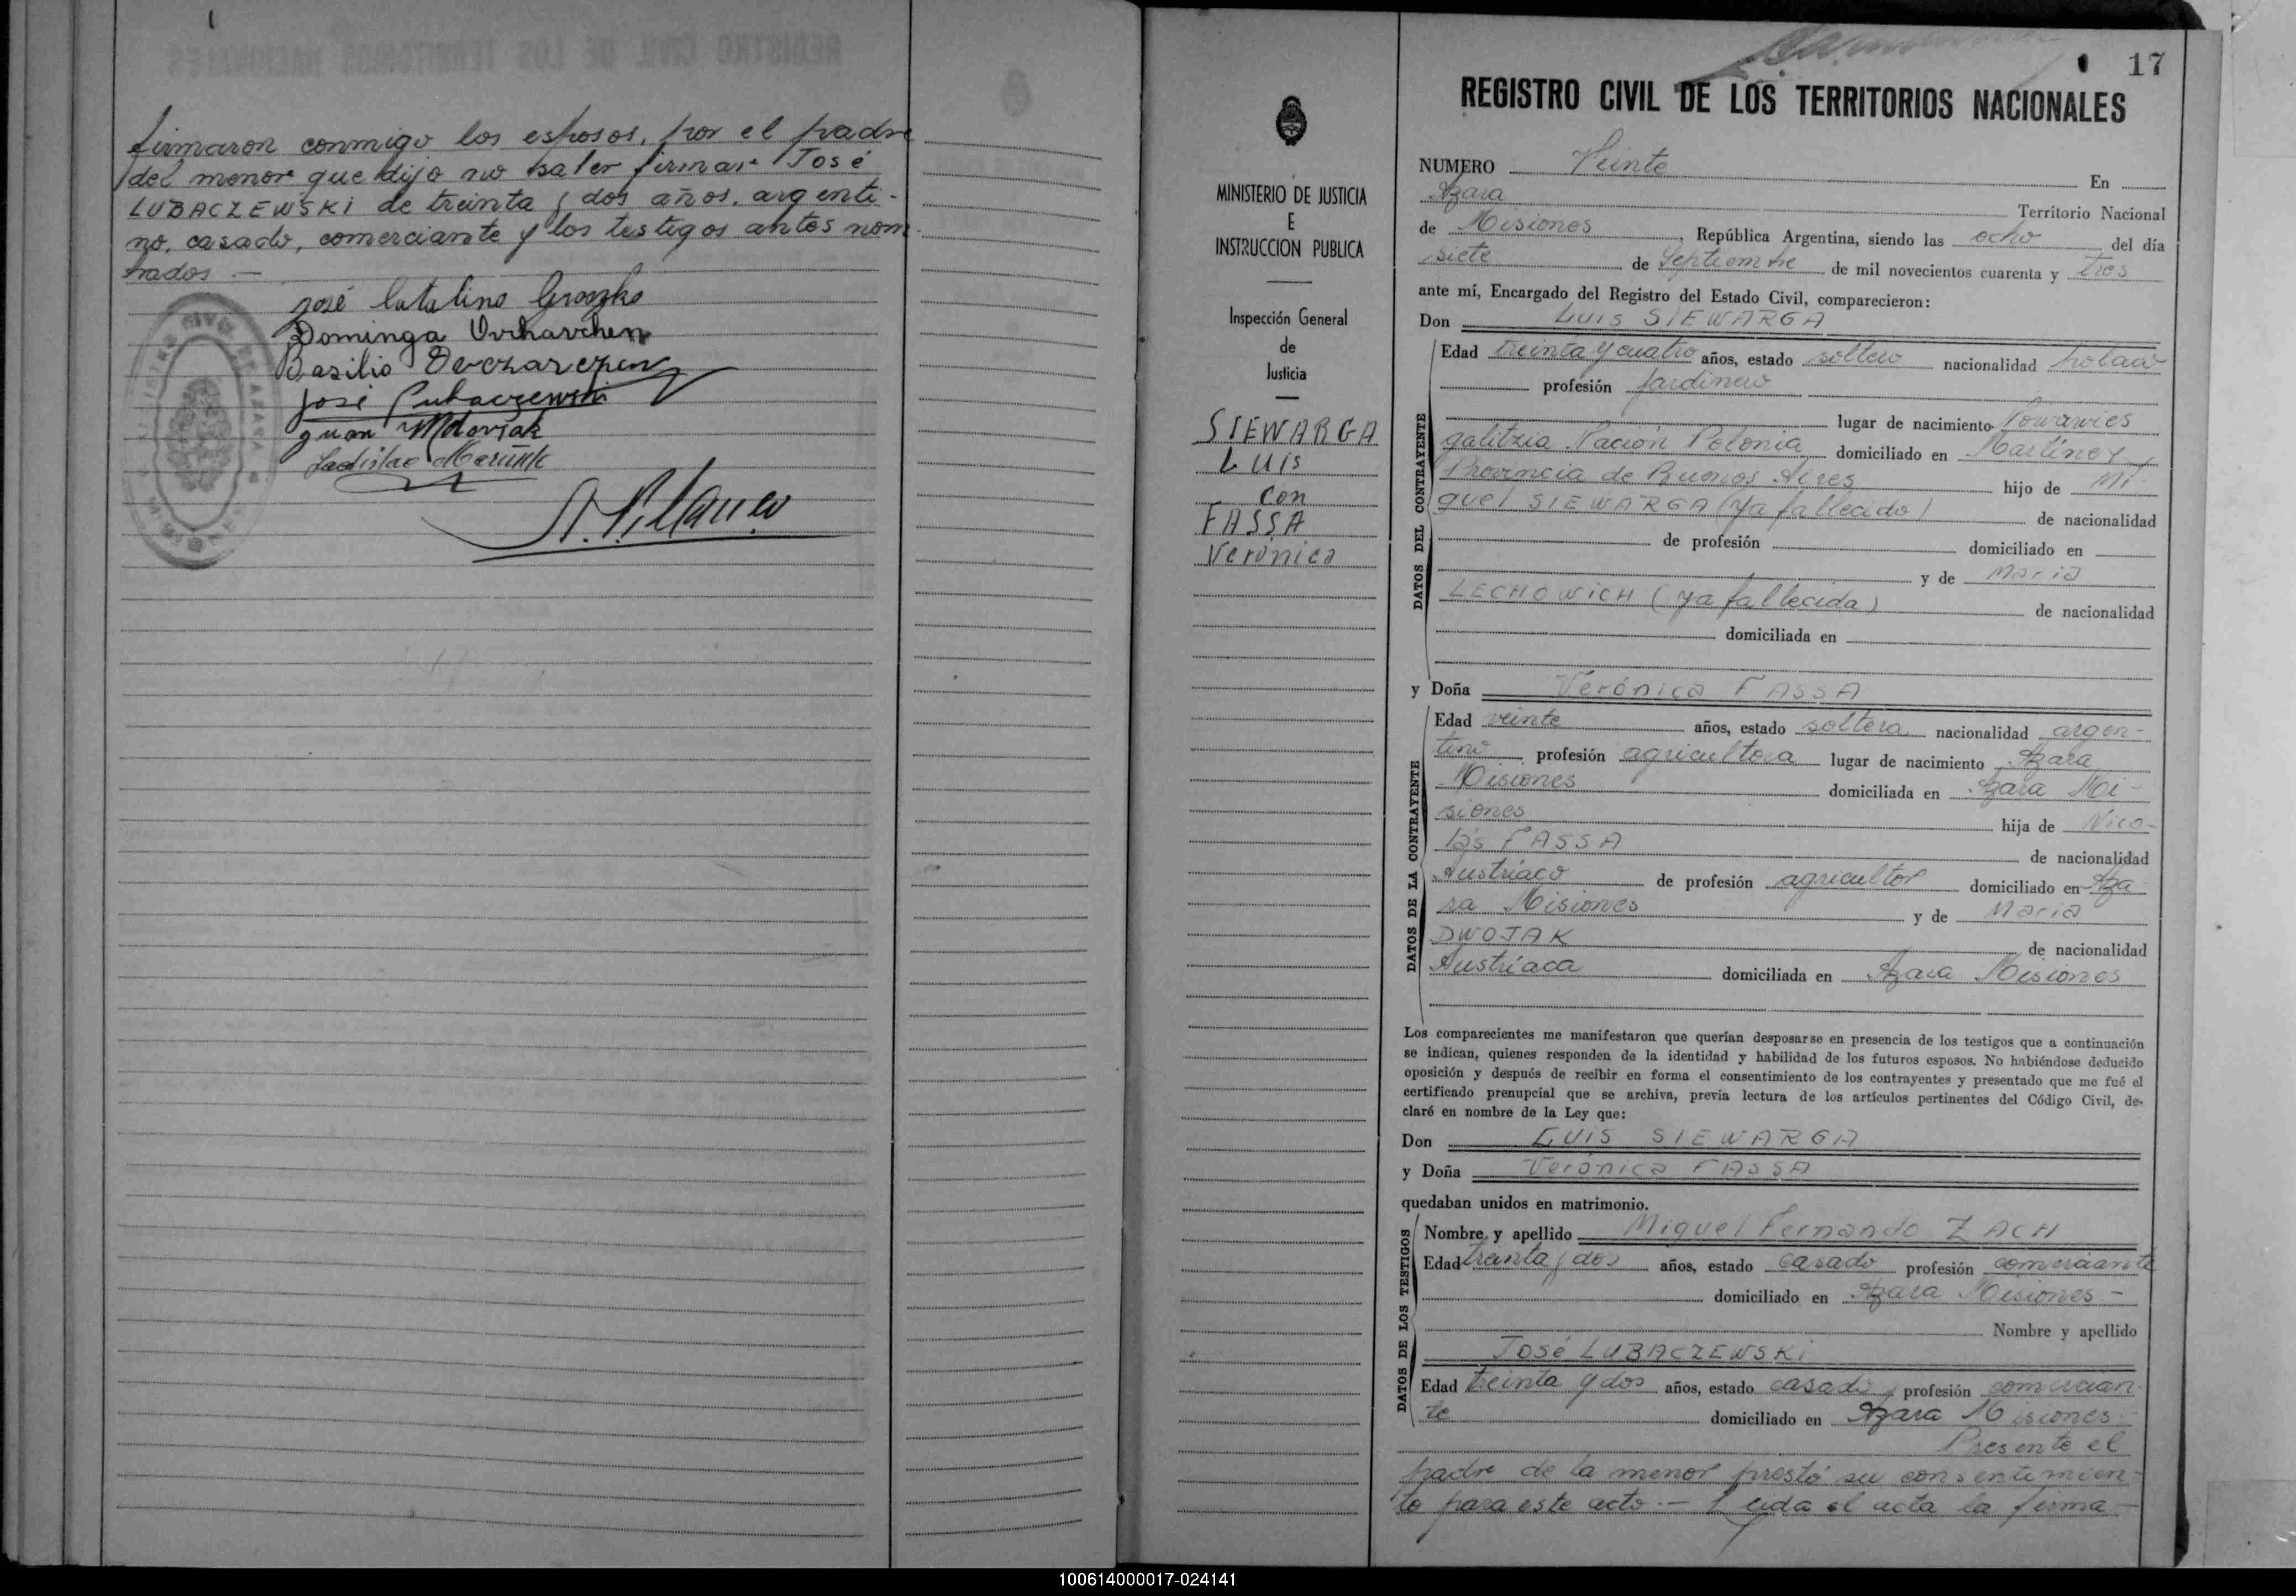 firmaron conmigo los esposos, por el padre
del menor que dijo no saber firmar José
LUBACZEWSKI de treinta y dos años, argenti-
no, casado, comerciante y los testigos antes nom
brados.—
José Catalino Gronzko
Dominga Ovcharchen
Basilio Ovczarczen
José Lubaczewski
Juan
Ladislao
17
REGISTRO CIVIL DE LOS TERRITORIOS NACIONALES
MINISTERIO DE JUSTICIA
E
INSTRUCCION PUBLICA
Inspección General
de
Justicia
SIEWARGA
Luis
con
FASSA
Verónica
NUMERO Veinte En
Azara Territorio Nacional
de Misiones, República Argentina, siendo las ocho del día
siete de Septiembre de mil novecientos cuarenta y tres
ante mí, Encargado del Registro del Estado Civil, comparecieron:
Don Luis SIEWARGA
DATOS DEL CONTRAYENTE
Edad treinta y cuatro años, estado soltero nacionalidad polaco
profesión jardinero
lugar de nacimiento
galitzia Nación Polonia domiciliado en Martínez
Provincia de Buenos Aires hijo de Mi-
guel SIEWARGA (ya fallecido) de nacionalidad
de profesión domiciliado en
y de María
LECHOWICH (ya fallecida) de nacionalidad
domiciliada en
y Doña Verónica FASSA
DATOS DE LA CONTRAYENTE
Edad veinte años, estado soltera nacionalidad argen-
tina profesión agricultora lugar de nacimiento Azara
Misiones domiciliada en Azara Mi-
siones hija de Nico-
lás FASSA de nacionalidad
Austríaco de profesión agricultor domiciliado en Aza-
ra Misiones y de María
DWOJAK de nacionalidad
Austríaca domiciliada en Azara Misiones
Los comparecientes me manifestaron que querían desposarse en presencia de los testigos que a continuación
se indican, quienes responden de la identidad y habilidad de los futuros esposos. No habiéndose deducido
oposición y después de recibir en forma el consentimiento de los contrayentes y presentado que me fué el
certificado prenupcial que se archiva, previa lectura de los artículos pertinentes del Código Civil, de-
claré en nombre de la Ley que:
Don LUIS SIEWARGA
y Doña Verónica FASSA
quedaban unidos en matrimonio.
DATOS DE LOS TESTIGOS
Nombre y apellido Miguel Fernando ZACH
Edad treinta y dos años, estado casado profesión comerciante
domiciliado en Azara Misiones -
Nombre y apellido
José LUBACZEWSKI
Edad treinta y dos años, estado casado profesión comercian-
te domiciliado en Azara Misiones
Presente el
padre de la menor prestó su consentimien-
to para este acto.— Leída el acta la firma-
100614000017-024141